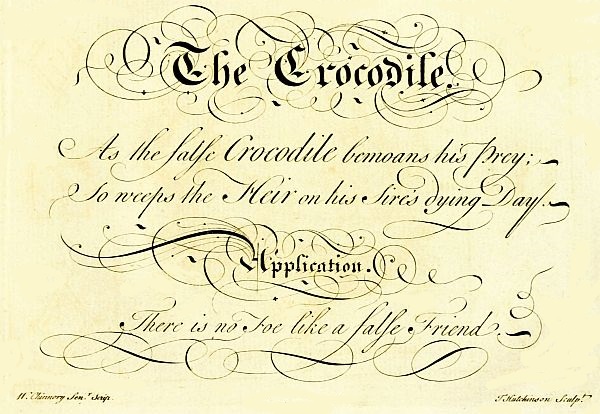 The Crocodile.
As the false Crocodile bemoans his Prey;
So weeps the Heir on his Sire's dying Day.
Application.
There is no Foe like a false Friend.
W. Chinnery Senr. Scrip.
J. Hutchinson Sculpt.